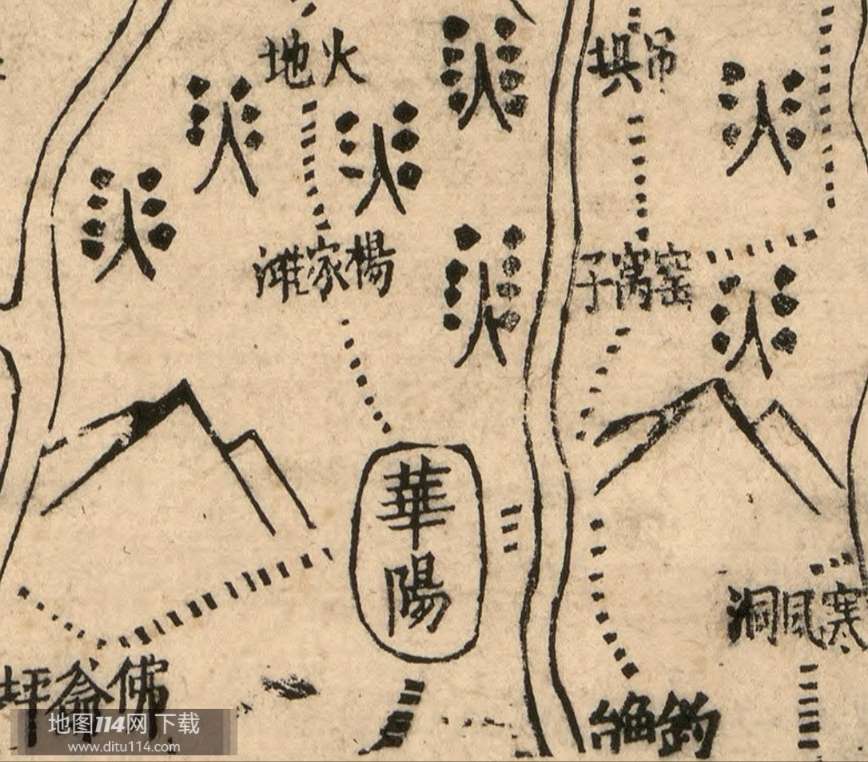 火地
吊垻
楊家灘
窑窩子
華
陽
寒風洞
釣魚台
地图114网 下载
www.ditu114.com